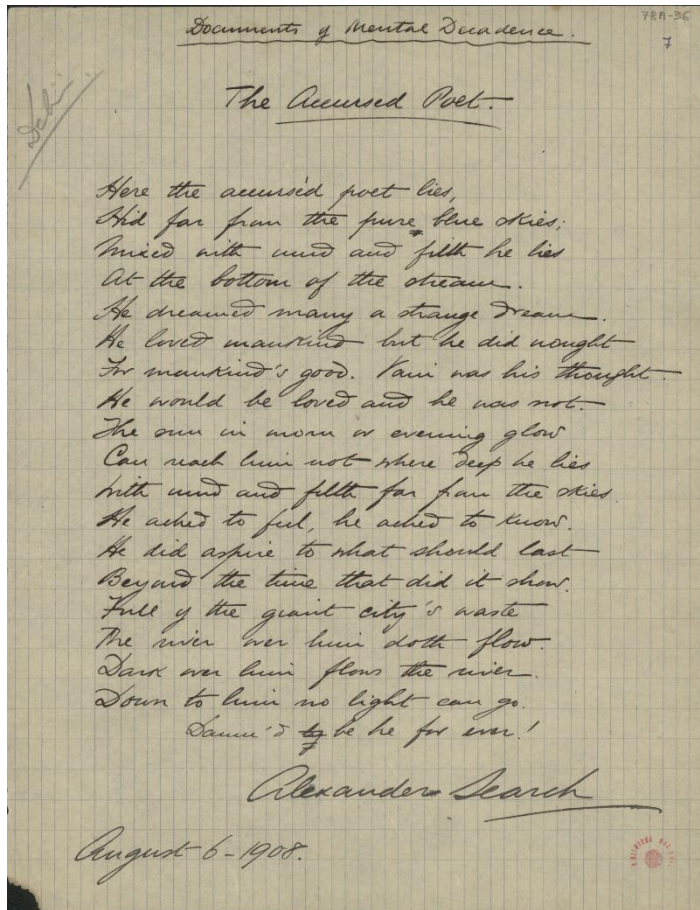 78A-36
7
Documents of Mental Decadence.
The Accursed Poet.
Here the accurséd poet lies,
Hid far from the pure blue skies;
Mixed with mud and filth he lies
At the bottom of the stream.
He dreamed many a strange dream.
He loved mankind but he did nought
For mankind's good. Vain was his thought.
He would be loved and he was not.
The sun in morn or evening glow
Can reach him not where deep he lies
With mud and filth far from the skies.
He ached to feel, he ached to know.
He did aspire to what should last
Beyond the time that did it show.
Full of the giant city's waste
The river over him doth flow.
Dark over him flows the river.
Down to him no light can go.
Damn'd be he for ever!
Alexander Search
August 6 - 1908.